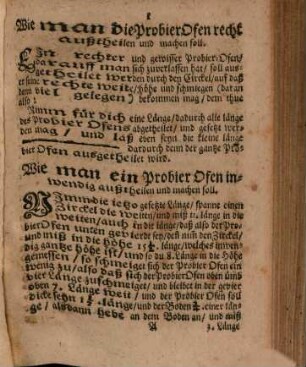 1
Wie man die Probier Ofen recht
außtheilen und machen soll.
Ein rechter und gewisser Probier Ofen/
darauff man sich zuverlassen hat/ soll aus-
getheilet werden durch den Circkel/ auf daß
er seine rechte weite/ höhe und schmiegen (daran
dem viel gelegen) bekommen mag/ dem thue
also:
Nimm für dich eine Länge/ dadurch alle länge
des Probier Ofens abgetheilet/ und gesetzt wer-
den mag/ und laß eben seyn die kleine länge
dardurch denn der gantze Pro-
bier Ofen ausgetheilet wird.
Wie man ein Probier Ofen in-
wendig außtheilen und machen soll.
Nimm die ietzo gesetzte Länge/ spanne einen
Circkel die weiten/ und miß 11. länge in die
weiten/ auch in die länge/ daß also der Pro-
bier Ofen unten gevierdte sey/ deß nun den Circkel/
und miß in die höhe 15½. länge/ welches inwen-
dig gantze höhe ist/ und so du 8. Länge in die Höhe
gemessen/ so schmieget sich der Probier Ofen ein
wenig zu/ also daß sich der Probier Ofen oben umb
vier Länge zuschmieget/ und bleibet in der gevier
oben 7. Länge weit/ und der Probier Ofen soll
dicke sehn 1½. länge/ und der Boden ¾. einer län-
ge/ alsdann hebe an dem Boden an/ und miß
A 3. Länge